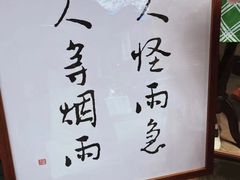 人怪雨急
人等烟雨